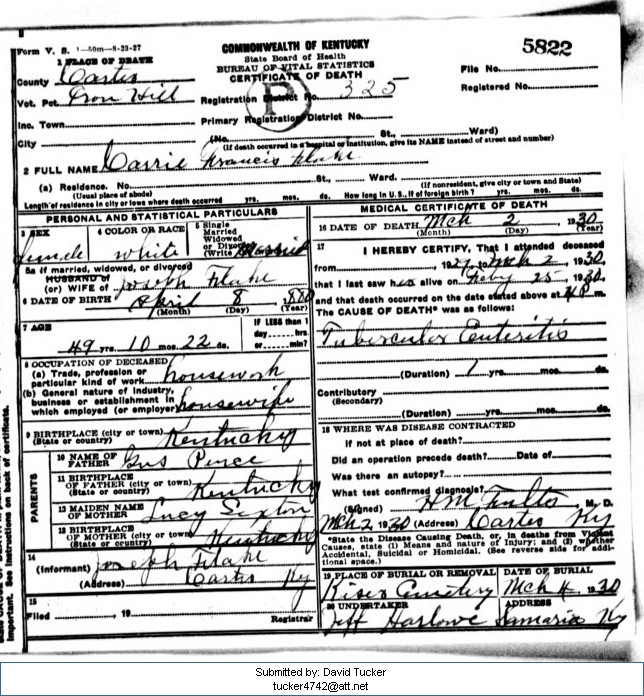 Form V. S. 1-50m-8-23-27
COMMONWEALTH OF KENTUCKY
State Board of Health
BUREAU OF VITAL STATISTICS
CERTIFICATE OF DEATH
5822
1 PLACE OF DEATH
County Carter
File No.
Vot. Pct. Iron Hill
Registration District No. 325
Registered No.
P
Inc. Town
Primary Registration District No.
City (No. St., Ward)
(If death occurred in a hospital or institution, give its NAME instead of street and number)
2 FULL NAME Carrie Francis
(a) Residence. No. St., Ward.
(Usual place of abode) (If nonresident, give city or town and State)
Length of residence in city or town where death occurred yrs. mos. ds. How long in U. S., if of foreign birth? yrs. mos. ds.
PERSONAL AND STATISTICAL PARTICULARS
3 SEX female
4 COLOR OR RACE white
5 Single
Married
Widowed
or Divorced
(Write Married
5a If married, widowed, or divorced
HUSBAND of
(or) WIFE of Joseph
6 DATE OF BIRTH April 8 880
(Month) (Day) (Year)
7 AGE
49 yrs. 10 mos. 22 ds.
IF LESS than 1
day hrs.
or min?
8 OCCUPATION OF DECEASED
(a) Trade, profession or
particular kind of work housework
(b) General nature of industry,
business or establishment in
which employed (or employer) housewife
9 BIRTHPLACE (city or town)
(State or country) Kentucky
PARENTS
10 NAME OF
FATHER Gus
11 BIRTHPLACE
OF FATHER (city or town)
(State or country) Kentucky
12 MAIDEN NAME
OF MOTHER Lucy Sexton
13 BIRTHPLACE
OF MOTHER (city or town)
(State or country) Kentucky
14
(Informant) Joseph
(Address) Carter Ky
15
Filed 19
Registrar
MEDICAL CERTIFICATE OF DEATH
16 DATE OF DEATH Mch 2 1930
(Month) (Day) (Year)
17 I HEREBY CERTIFY, That I attended deceased
from , 1929 to Mch 2, 1930,
that I last saw her alive on Feby 25 1930,
and that death occurred on the date stated above at 4 P m.
The CAUSE OF DEATH* was as follows:
Tubercular Enteritis
(Duration) 1 yrs. mos. ds.
Contributory
(Secondary)
(Duration) yrs. mos. ds.
18 WHERE WAS DISEASE CONTRACTED
If not at place of death?
Did an operation precede death? Date of
Was there an autopsy?
What test confirmed diagnosis?
(Signed) H M , M. D.
Mch 2 1930 (Address) Carter Ky
*State the Disease Causing Death, or, in deaths from Violent
Causes, state (1) Means and nature of Injury; and (2) whether
Accidental, Suicidal or Homicidal. (See reverse side for addi-
tional space.)
19 PLACE OF BURIAL OR REMOVAL
DATE OF BURIAL
Cemetery Mch 4 1930
20 UNDERTAKER
ADDRESS
Jeff Harlowe Samaria Ky
important. See instructions on back of certificate.
Submitted by: David Tucker
tucker4742@att.net